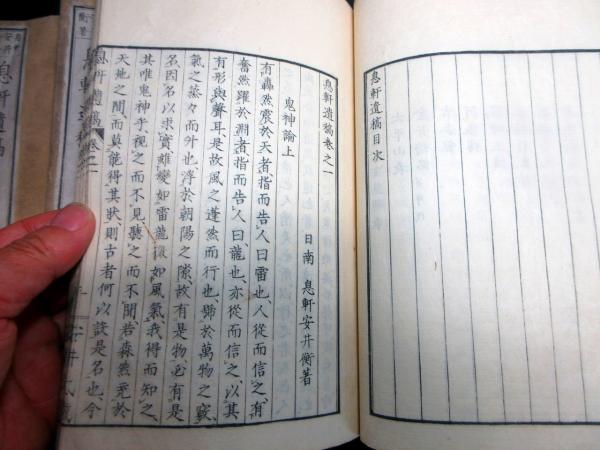 息軒遺稿目次
息軒遺稿卷之一
日南 息軒安井衡著
鬼神論上
有轟然震於天者、指而告人曰、雷也、人從而信之、有
奮然羅於淵者、指而告人曰、龍也、亦從而信之、以其
有形與聲耳、是故風之蓬然而行也、號於萬物之竅、
氣之蒸々而外也、浮於朝陽之隙、故有是物、必有是
名、因名以求實、雖變如雷龍、微如風氣、我得而知之、
其唯鬼神乎、視之而不見、聽之而不聞、若森然充於
天地之間、而莫能得其狀、則古者何以設是名也、今
息軒遺稿 卷之一
安井氏藏
息軒遺稿